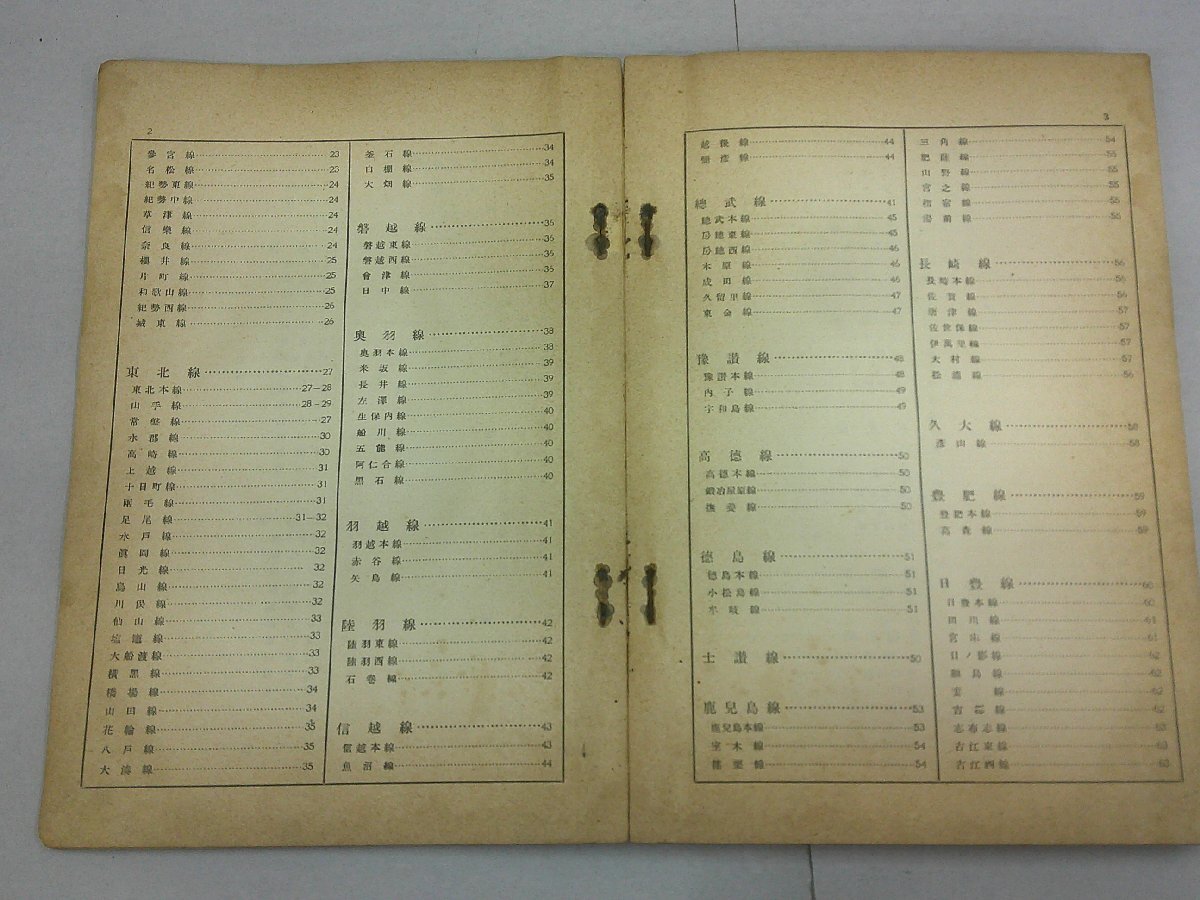 2
參宮線 23
名松線 23
紀勢東線 24
紀勢中線 24
草津線 24
信樂線 24
奈良線 24
櫻井線 25
片町線 25
和歌山線 25
紀勢西線 26
城東線 26
東北線 27
東北本線 27-28
山手線 28-29
常磐線 27
水郡線 30
高崎線 30
上越線 31
十日町線 31
兩毛線 31
足尾線 31-32
水戸線 32
眞岡線 32
日光線 32
烏山線 32
川俣線 32
仙山線 33
塩竈線 33
大船渡線 33
橫黑線 33
橋場線 34
山田線 34
花輪線 35
八戸線 35
大湊線 35
釜石線 34
白棚線 34
大畑線 35
磐越線 36
磐越東線 36
磐越西線 36
會津線 36
日中線 37
奧羽線 38
奧羽本線 38
米坂線 39
長井線 39
左澤線 39
生保内線 40
船川線 40
五能線 40
阿仁合線 40
黑石線 40
羽越線 41
羽越本線 41
赤谷線 41
矢島線 41
陸羽線 42
陸羽東線 42
陸羽西線 42
石卷線 42
信越線 43
信越本線 43
魚沼線 44
3
越後線 44
彌彥線 44
總武線 41
總武本線 45
房總東線 45
房總西線 46
木原線 46
成田線 46
久留里線 47
東金線 47
豫讃線 48
豫讃本線 48
内子線 49
宇和島線 49
高德線 50
高德本線 50
鍛冶屋原線 50
撫養線 50
德島線 51
德島本線 51
小松島線 51
牟岐線 51
土讃線 50
鹿兒島線 53
鹿兒島本線 53
室木線 54
三角線 54
肥薩線 55
山野線 55
宮之線 55
指宿線 55
湯前線 55
長崎線 56
長崎本線 56
佐賀線 56
唐津線 57
佐世保線 57
伊萬里線 57
大村線 57
松浦線 56
久大線 58
彥山線 58
豊肥線 59
豊肥本線 59
高森線 59
日豊線 60
日豊本線 60
田川線 61
宮床線 61
日ノ影線 62
細島線 62
妻線 62
吉都線 62
志布志線 63
古江東線 63
古江西線 63